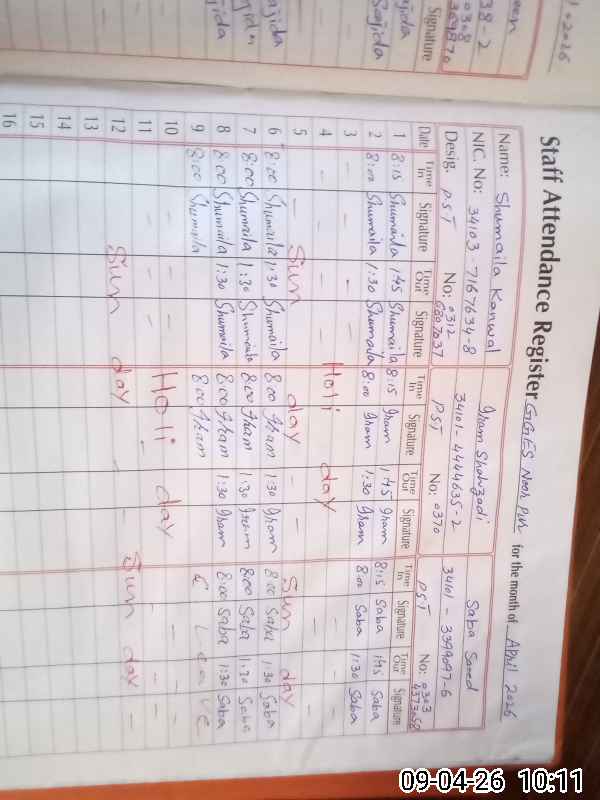 Staff Attendance Register GGES Noor Pur for the month of April 2026
Name: Shumaila Kanwal
NIC. No: 34103-7167634-8
Desig. PST No: 0312 6807037
Iram Shahzadi
34101-4444635-2
PST No: 0370
Saba Saeed
34101-3399097-6
PST No: 0303 4373058
Date Time In Signature Time Out Signature Time In Signature Time Out Signature Time In Signature Time Out Signature
1 8:15 Shumaila 1:45 Shumaila 8:15 Iram 1:45 Iram 8:15 Saba 1:45 Saba
2 8:00 Shumaila 1:30 Shumaila 8:00 Iram 1:30 Iram 8:00 Saba 1:30 Saba
3 - - - -
4 - - - - Holi day - -
5 - Sun - - day - - Sun day
6 8:00 Shumaila 1:30 Shumaila 8:00 Iram 1:30 Iram 8:00 Saba 1:30 Saba
7 8:00 Shumaila 1:30 Shumaila 8:00 Iram 1:30 Iram 8:00 Saba 1:30 Saba
8 8:00 Shumaila 1:30 Shumaila 8:00 Iram 1:30 Iram 8:00 Saba 1:30 Saba
9 8:00 Shumaila 8:00 Iram C Leave
10 - - - - Holi day - -
11 - - - - - - -
12 Sun day Sun day
13
14
15
16
2026
38-2
0308
Signature
Sajida
Sajida
09-04-26 10:11